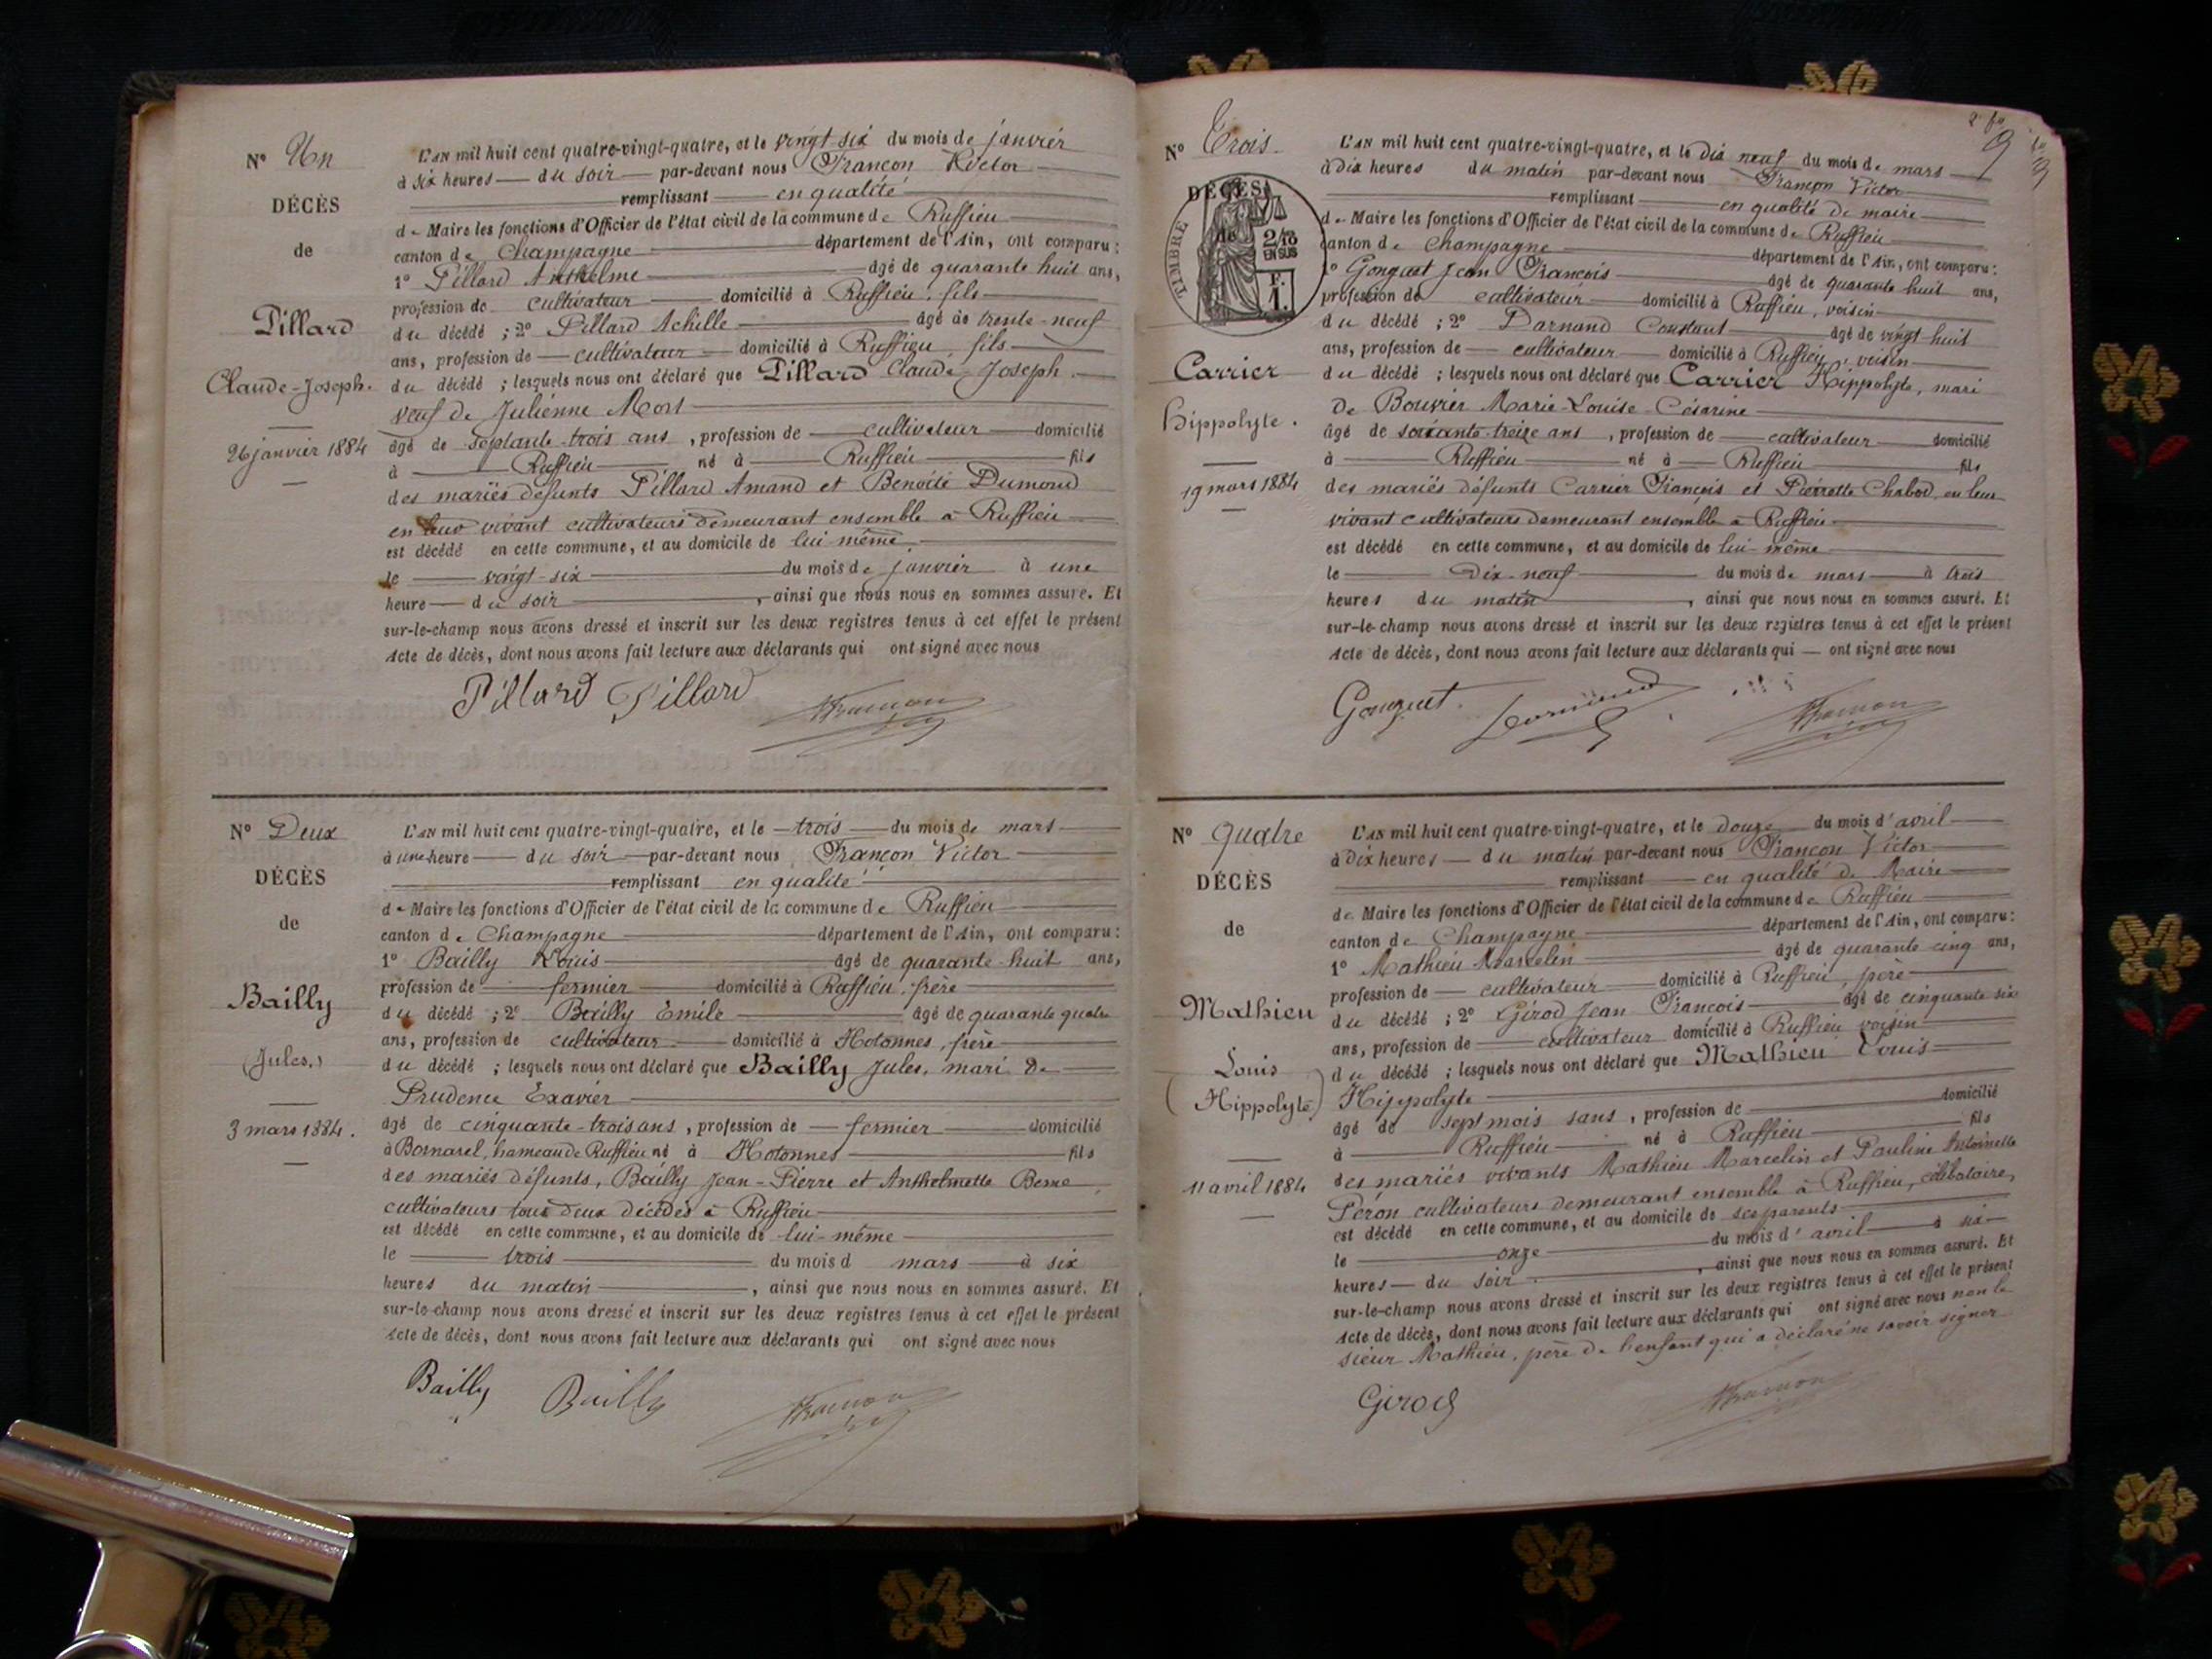 N° Un
DÉCÈS
de
Pillard
Claude-Joseph.
26 janvier 1884
L'AN mil huit cent quatre-vingt-quatre, et le vingt six du mois de janvier
à six heures du soir par-devant nous Françon Victor
remplissant en qualité
de Maire les fonctions d'Officier de l'état civil de la commune de Ruffieu
canton de Champagne département de l'Ain, ont comparu :
1° Pillard Anthelme âgé de quarante huit ans,
profession de cultivateur domicilié à Ruffieu, fils
du décédé ; 2° Pillard Achille âgé de trente-neuf
ans, profession de cultivateur domicilié à Ruffieu fils
du décédé ; lesquels nous ont déclaré que Pillard Claude Joseph
veuf de Julienne Mort
âgé de septante-trois ans, profession de cultivateur domicilié
à Ruffieu né à Ruffieu fils
des mariés défunts Pillard Amand et Benoîte Dumond
en leur vivant cultivateurs demeurant ensemble à Ruffieu
est décédé en cette commune, et au domicile de lui même
le vingt-six du mois de janvier à une
heure du soir, ainsi que nous nous en sommes assuré. Et
sur-le-champ nous avons dressé et inscrit sur les deux registres tenus à cet effet le présent
Acte de décès, dont nous avons fait lecture aux déclarants qui ont signé avec nous
Pillard Pillard Françon
N° Deux
DÉCÈS
de
Bailly
(Jules.)
3 mars 1884.
L'AN mil huit cent quatre-vingt-quatre, et le trois du mois de mars
à une heure du soir par-devant nous Françon Victor
remplissant en qualité
de Maire les fonctions d'Officier de l'état civil de la commune de Ruffieu
canton de Champagne département de l'Ain, ont comparu :
1° Bailly Louis âgé de quarante-huit ans,
profession de fermier domicilié à Ruffieu, frère
du décédé ; 2° Bailly Emile âgé de quarante quatre
ans, profession de cultivateur domicilié à Hotonnes, frère
du décédé ; lesquels nous ont déclaré que Bailly Jules, mari de
Prudence Exavier
âgé de cinquante-trois ans, profession de fermier domicilié
à Bornarel, hameau de Ruffieu né à Hotonnes fils
des mariés défunts, Bailly Jean-Pierre et Anthelmette Berne
cultivateurs tous deux décédés à Ruffieu
est décédé en cette commune, et au domicile de lui-même
le trois du mois d mars à six
heures du matin, ainsi que nous nous en sommes assuré. Et
sur-le-champ nous avons dressé et inscrit sur les deux registres tenus à cet effet le présent
Acte de décès, dont nous avons fait lecture aux déclarants qui ont signé avec nous
Bailly Bailly Françon
N° Trois
DÉCÈS
de
TIMBRE
2/10
EN SUS
F.
1.
Carrier
Hippolyte.
19 mars 1884
L'AN mil huit cent quatre-vingt-quatre, et le dix neuf du mois de mars
à dix heures du matin par-devant nous Françon Victor
remplissant en qualité de maire
de Maire les fonctions d'Officier de l'état civil de la commune de Ruffieu
canton de Champagne département de l'Ain, ont comparu :
1° Gonguet Jean François âgé de quarante huit ans,
profession de cultivateur domicilié à Ruffieu, voisin
du décédé ; 2° Darnand Constant âgé de vingt-huit
ans, profession de cultivateur domicilié à Ruffieu, voisin
du décédé ; lesquels nous ont déclaré que Carrier Hippolyte, mari
de Bouvier Marie-Louise-Césarine
âgé de soixante-treize ans, profession de cultivateur domicilié
à Ruffieu né à Ruffieu fils
des mariés défunts Carrier François et Pierrette Chabod, en leur
vivant cultivateurs demeurant ensemble à Ruffieu
est décédé en cette commune, et au domicile de lui-même
le dix-neuf du mois de mars à trois
heures du matin, ainsi que nous nous en sommes assuré. Et
sur-le-champ nous avons dressé et inscrit sur les deux registres tenus à cet effet le présent
Acte de décès, dont nous avons fait lecture aux déclarants qui ont signé avec nous
Gonguet Françon
N° Quatre
DÉCÈS
de
Mathieu
Louis
(Hippolyte)
11 avril 1884
L'AN mil huit cent quatre-vingt-quatre, et le douze du mois d'avril
à dix heures du matin par-devant nous Françon Victor
remplissant en qualité de Maire
de Maire les fonctions d'Officier de l'état civil de la commune de Ruffieu
canton de Champagne département de l'Ain, ont comparu :
1° Mathieu Marcelin âgé de quarante cinq ans,
profession de cultivateur domicilié à Ruffieu, père
du décédé ; 2° Girod Jean François âgé de cinquante six
ans, profession de cultivateur domicilié à Ruffieu voisin
du décédé ; lesquels nous ont déclaré que Mathieu Louis
Hippolyte
âgé de sept mois sans, profession de domicilié
à Ruffieu né à Ruffieu fils
des mariés vivants Mathieu Marcelin et Pauline Antoinette
Péron cultivateurs demeurant ensemble à Ruffieu, célibataire,
est décédé en cette commune, et au domicile de ses parents
le onze du mois d'avril à six
heures du soir, ainsi que nous nous en sommes assuré. Et
sur-le-champ nous avons dressé et inscrit sur les deux registres tenus à cet effet le présent
Acte de décès, dont nous avons fait lecture aux déclarants qui ont signé avec nous non le
sieur Mathieu, père de l'enfant qui a déclaré ne savoir signer
Girod Françon